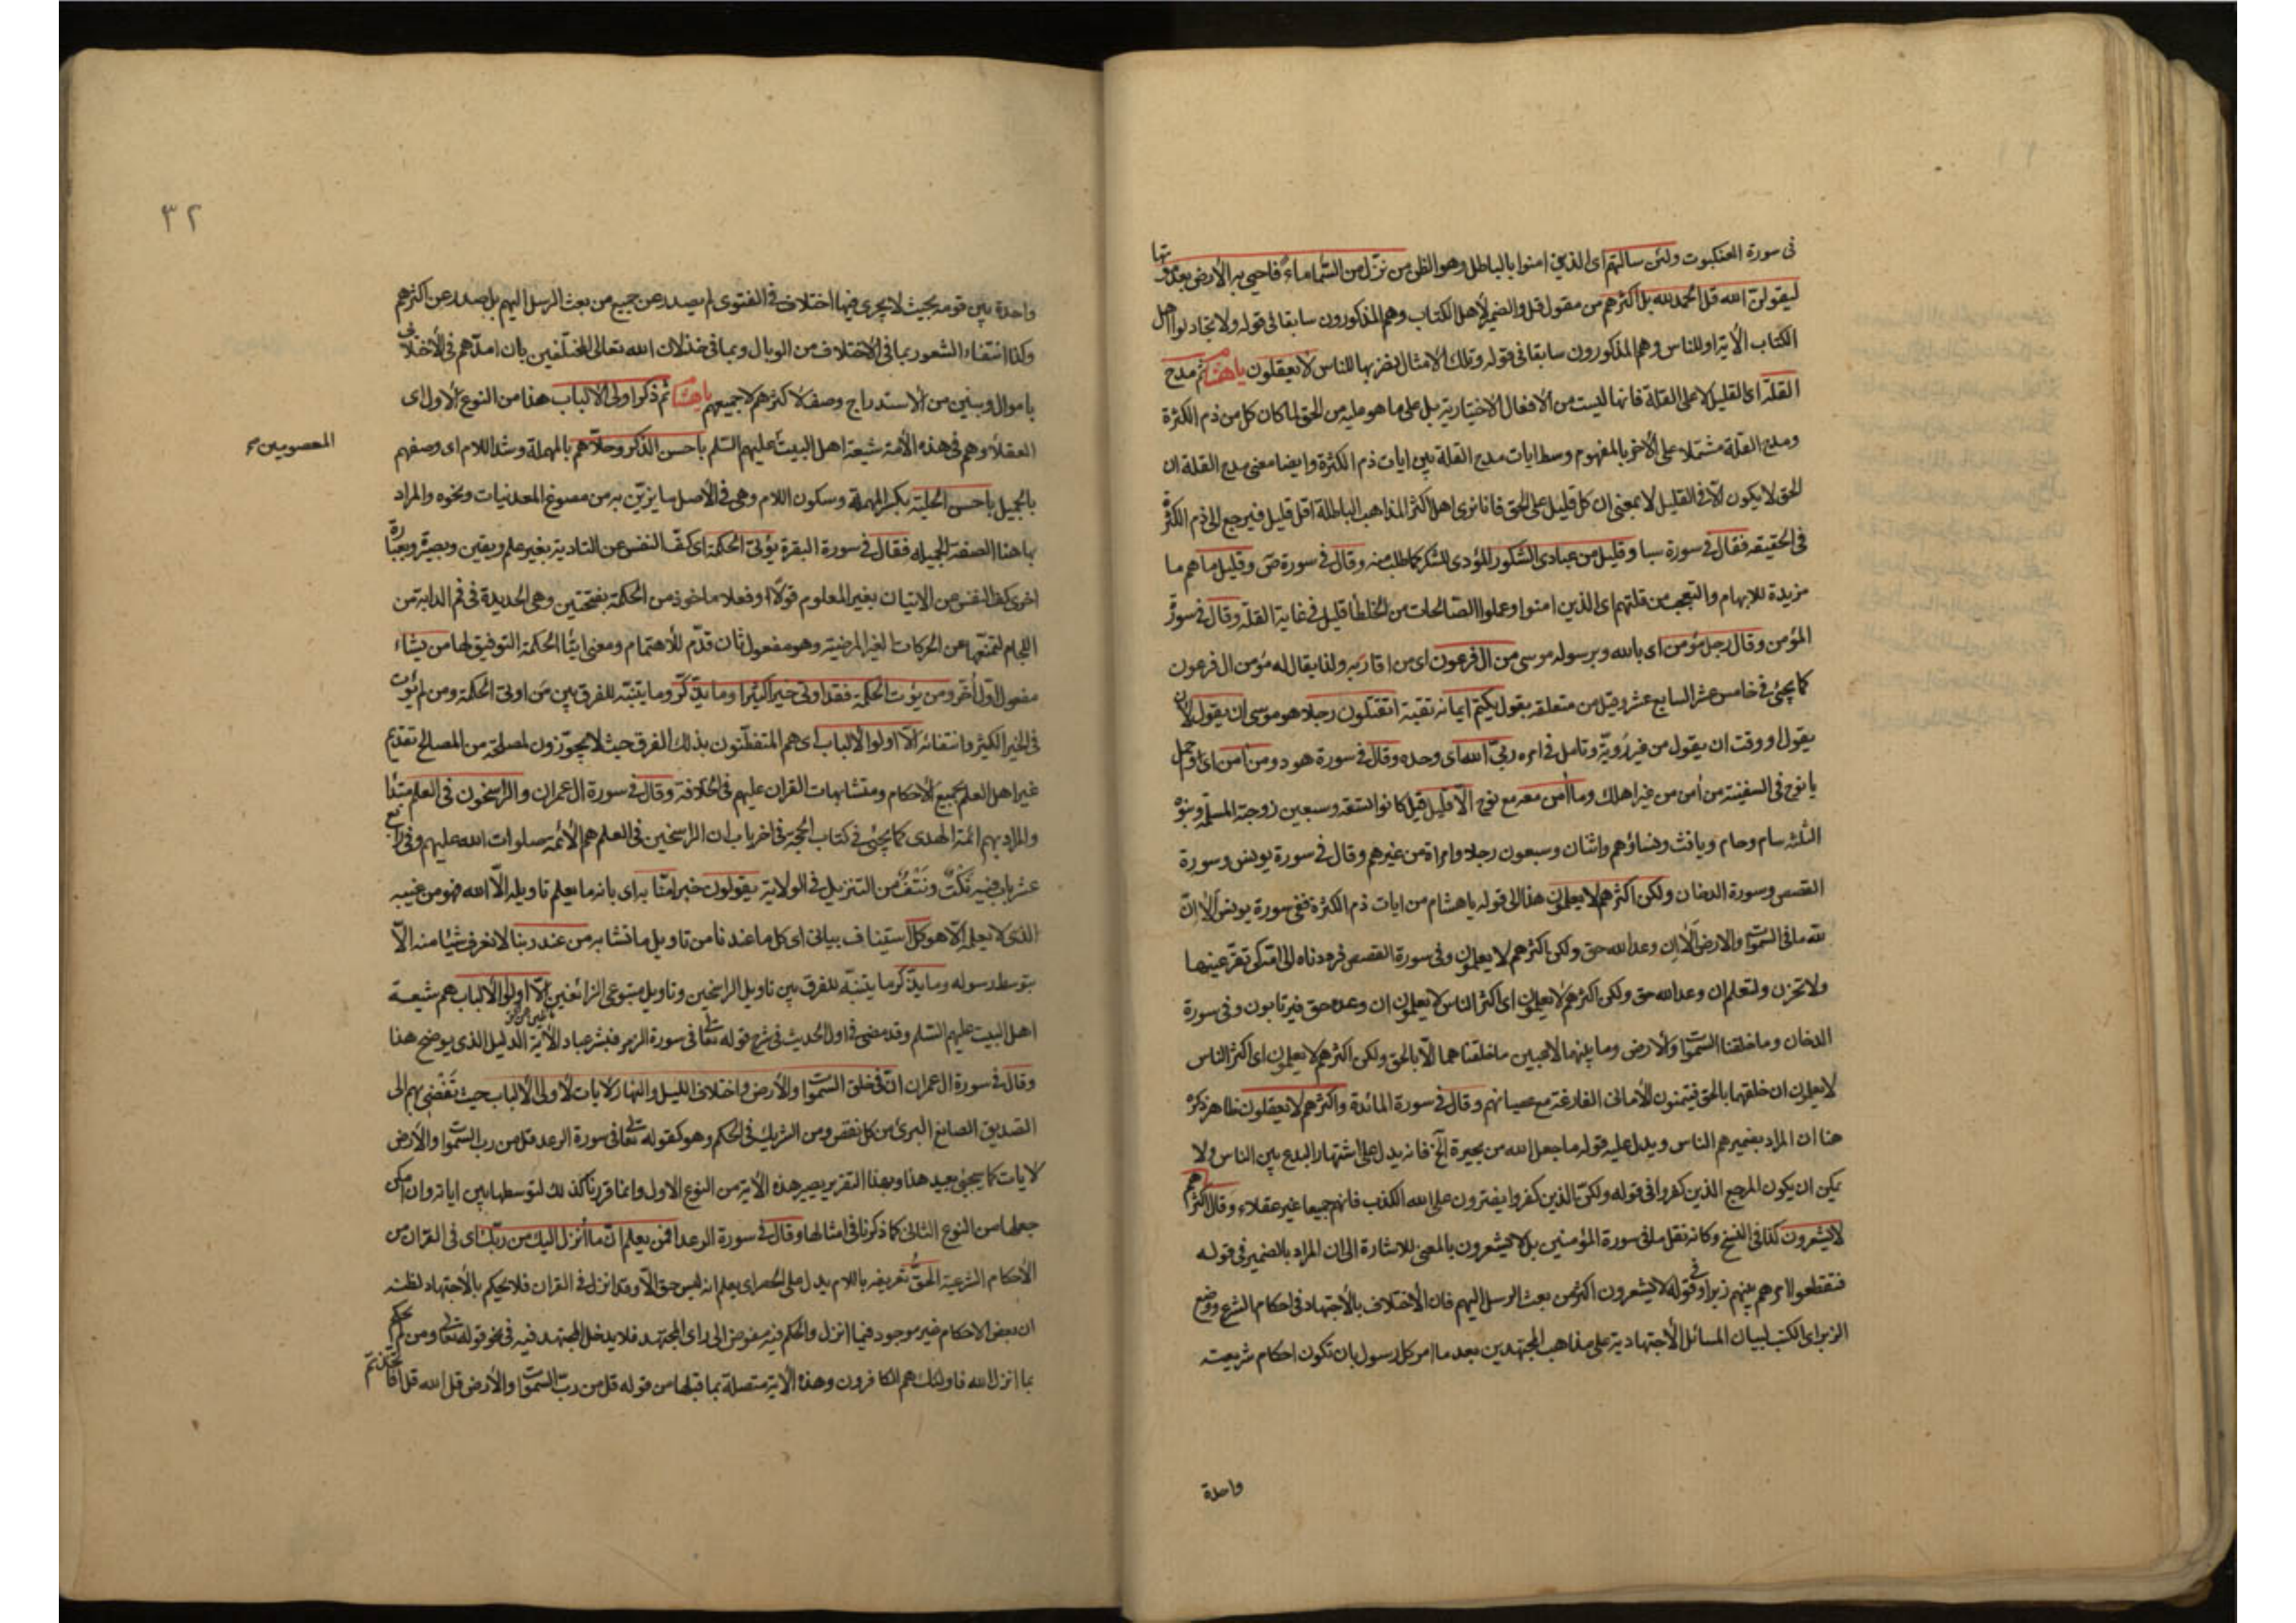 فى سورة العنكبوت ولئن سالتهم اى الذين امنوا بالباطل وهو الظن من نزّل من السّماء ماءً فاحيى به الأرض بعد موتها
ليقولنّ الله قل الحمد لله بل اكثرهم من مقول قل والضمير لأهل الكتاب وهم المذكورون سابقا فى قوله ولا تجادلوا اهل
الكتاب الآية او للناس وهم المذكورون سابقا فى قوله وتلك الامثال نضربها للناس لا يعقلون يا هشام ثم مدح
القلّة اى القليل لا على القلة فانها ليست من الأفعال الاختيارية بل على ما هو عليه من الحق لما كان كل من ذم الكثرة
ومدح القلة مشتملا على الآخر بالمفهوم وسط ايات مدح القلة بين ايات ذم الكثرة وايضا معنى مدح القلة ان
الحق لا يكون الّا فى القليل لا بمعنى ان كل قليل على الحق فانا نرى اهل اكثر المذاهب الباطلة اقل قليل فيرجع الى ذم الكثرة
فى الحقيقه فقال فى سورة سبا وقليل من عبادى الشكور المؤدى للشكر كما طلب منه وقال فى سورة ص وقليل ما هم ما
مزيدة للابهام والتعجب من قلتهم اى الذين امنوا وعملوا الصّالحات من الخلطا قليل فى غاية القلّه وقال فى سورة
المؤمن وقال رجل مؤمن اى بالله وبرسوله موسى من ال فرعون اى من اقاربه ولذا يقال له مؤمن ال فرعون
كما يجئ فى خامس عشر السابع عشر وقيل من متعلقه بقول يكتم ايمانه تقية اتقتلون رجلا هو موسى ان يقول لأن
يقول او وقت ان يقول من غير رويّة وتامل فى امره ربىّ الله اى وحده وقال فى سورة هود ومن امن اى احمل
يا نوح فى السفينة من امن من غير اهلك وما امن معه مع نوح الّا قليل قيل كانوا تسعة وسبعين زوجته المسلمة وبنوه
الثلثه سام وحام ويافث ونساؤهم واثنان وسبعون رجلا وامراة من غيرهم وقال فى سورة يونس وسورة
القصص وسورة الدخان ولكن اكثرهم لا يعلمون هذا الى قوله يا هشام من ايات ذم الكثرة ففى سورة يونس ألا انّ
لله ما فى السّموات والارض ألا ان وعد الله حق ولكن اكثرهم لا يعلمون وفى سورة القصص فرددناه الى امّه كى تقرّ عينها
ولا تحزن ولتعلم ان وعد الله حق ولكن اكثرهم لا يعلمون اى اكثر الناس لا يعلمون ان وعده حق فيرتابون وفى سورة
الدخان وما خلقنا السّموات والأرض وما بينهما لاعبين ما خلقناهما الّا بالحق ولكن اكثرهم لا يعلمون اى اكثر الناس
لا يعلمون ان خلقهما بالحق فيتمنون الأمانى الفارغة مع عصيانهم وقال فى سورة المائدة واكثرهم لا يعقلون ظاهر ذكره
هنا ان المراد بضميرهم الناس ويدل عليه قوله ما جعل الله من بحيرة الخ فانه يدل على اشتهار البدع بين الناس ولا
يمكن ان يكون المرجع الذين كفروا فى قوله ولكنّ الذين كفروا يفترون على الله الكذب فانهم جميعا غير عقلاء وقال اكثرهم
لا يشعرون كذا فى النسخ وكانه نقل ما فى سورة المؤمنين بل لا يشعرون بالمعنى للاشارة الى ان المراد بالضمير فى قوله
فتقطعوا امرهم بينهم زبرا وفى قوله لا يشعرون اكثر من بعث الرسل اليهم فان الأختلاف بالأجتهاد فى احكام الشرع ووضع
الزبر اى الكتب لبيان المسائل الأجتهادية على مذاهب المجتهدين بعد ما امر كل رسول بان تكون احكام شريعته
واحدة
٣٢
واحدة بين قومه بحيث لا يجرى فيها اختلاف فى الفتوى لم يصدر عن جميع من بعث الرسل اليهم بل صدر عن اكثرهم
وكذا انتفاء الشعور بما فى الأختلاف من الوبال وبما فى خذلان الله تعالى المختلفين بان امدّهم فى الأختلاف
باموال وبنين من الأستدراج وصف لأكثرهم لا جميعهم يا هشام ثم ذكر اولى الألباب هذا من النوع الأول اى
العقلاء وهم فى هذه الأمة شيعة اهل البيت عليهم السّلم باحسن الذكر وحلّاهم بالمهملة وشد اللام اى وصفهم
المعصومين
بالجميل باحسن الحلية بكسر المهملة وسكون اللام وهى فى الأصل ما يزيّن به من مصوغ المعدنيات ونحوه والمراد
بها هنا الصفة الجميله فقال فى سورة البقرة يؤتى الحكمة اى كفّ النفس عن التادية بغير علم ويقين وبصيرة وبعبارة
اخرى كفّ النفس عن الاتيان بغير المعلوم قولًا او فعلا ماخوذ من الحكمة بفتحتين وهى الحديدة فى فم الدابة من
اللجام لتمنّعها عن الحركات الغير المرضية وهو مفعول ثان قدّم للأهتمام ومعنى ايتاء الحكمة التوفيق لها من يشاء
مفعول اوّل أخّر ومن يؤت الحكمة فقد اوتى خيرا كثيرا وما يذّكّر وما يتنبّه للفرق بين من اوتى الحكمة ومن لم يؤت
فى الخير الكثير وانتفائه الّا اولوا الألباب اى هم المتفطّنون بذلك الفرق حيث لا يجوّزون لمصلحة من المصالح تقديم
غير اهل العلم بجميع الأحكام ومتشابهات القران عليهم فى الخلافة وقال فى سورة ال عمران والراسخون فى العلم مبتدأ
والمراد بهم ائمة الهدى كما يجئ فى كتاب الحجة فى اخر باب ان الراسخين فى العلم هم الأئمه صلوات الله عليهم وفى رابع
عشر باب فيه نكتٌ ونتفٌ من التنزيل فى الولاية يقولون خبر امنّا به اى بانه ما يعلم تاويله الّا الله فهو من غيبه
الذى لا يعلمه الّا هو كلّ استيناف بيانى اى كل ما عندنا من تاويل ما تشابه من عند ربنا لا نعرف شيئا منه الّا
بتوسط رسوله وما يذّكّر ما يتنبّه للفرق بين تاويل الراسخين وتاويل متبوعى الزائغين الّا اولوا الألباب هم شيعة
اهل البيت عليهم السّلم وقد مضى فى اول الحديث فى شرح قوله تعالى فى سورة الزمر فبشر عباد الآية الدليل الذى يوضح هذا
وقال فى سورة ال عمران انّ فى خلق السّموات والأرض واختلاف الليل والنهار لآيات لأولى الألباب حيث تفضى بهم الى
التصديق الصانع البرئ من كل نقص ومن الشريك فى الحكم وهو كقوله تعالى فى سورة الرعد قل من رب السّموات والأرض
لآيات كما سيجئ بعيد هذا وبهذا التقرير يصير هذه الآية من النوع الاول وانما قررنا كذلك لتوسطها بين اياته وان امكن
جعلها من النوع الثانى كما ذكرنا فى امثالها وقال فى سورة الرعد افمن يعلم انّ ما أنزل اليك من ربّك اى فى القران من
الأحكام الشرعية الحقّ تعريفه باللام يدل على الحصر اى يعلم انه ليس حق الّا وقد انزل فى القران فلا يحكم بالأجتهاد لظنه
ان بعض الاحكام غير موجود فيما انزل والحكم فيه مفوض الى راى المجتهد فلا يدخل المجتهد فيه فى نحو قوله تعالى ومن لم يحكم
بما انزل الله فاولئك هم الكافرون وهذه الآية متصلة بما قبلها من قوله قل من ربّ السّموات والأرض قل الله قل افاتخذتم